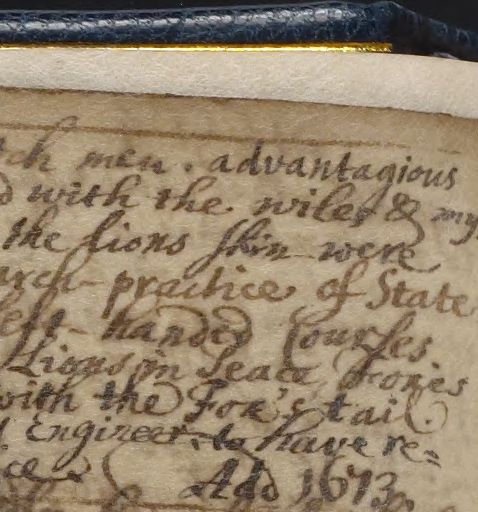 tch men. advantagious
d with the wiles & my
the lions skin were
arch-practice of State
left-handed Courses
Lions in Peace
with the Fox's tail.
Engineer, to have re=
ce. Ado 1673